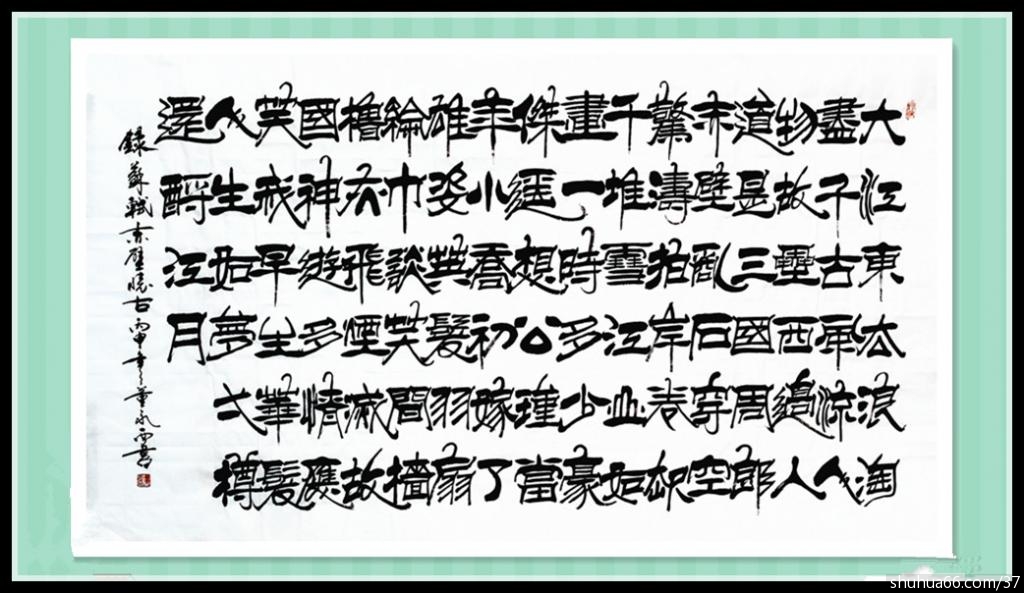 大江東去浪淘
盡千古風流人
物故壘西邊人
道是三國周郎
赤壁亂石穿空
驚濤拍岸卷起
千堆雪江山如
畫一時多少豪
傑遥想公瑾當
年小喬初嫁了
雄姿英髮羽扇
綸巾談笑間檣
櫓灰飛煙滅故
國神遊多情應
笑我早生華髮
人生如夢弌樽
還酹江月
錄蘇軾赤壁懷古丙申年董永西書
shuhua66.com/37